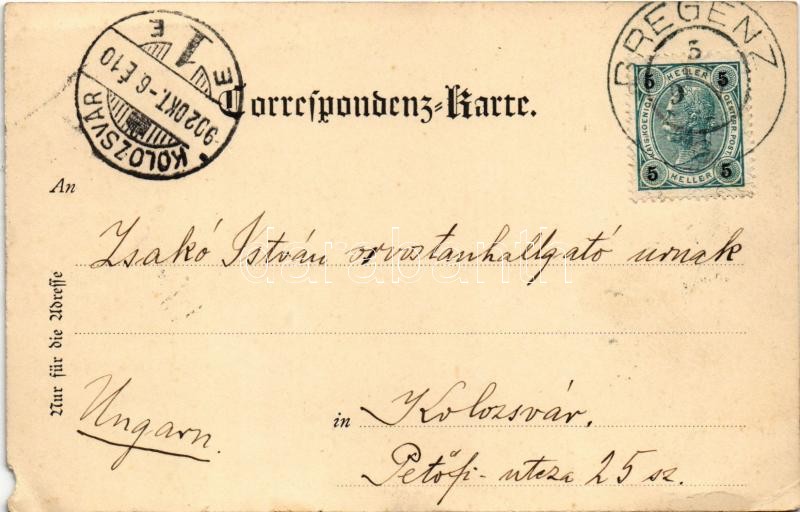 BREGENZ
5
9
5 HELLER 5
KAIS. KOENIGL. OESTERR. POST
5 HELLER 5
KOLOZSVÁR
902 OKT. -6 É 10
1
E E
Correspondenz-Karte.
An
Zsakó István orvostanhallgató urnak
darabanth
Nur für die Adresse
Ungarn.
in Kolozsvár.
Petőfi-utcza 25 sz.